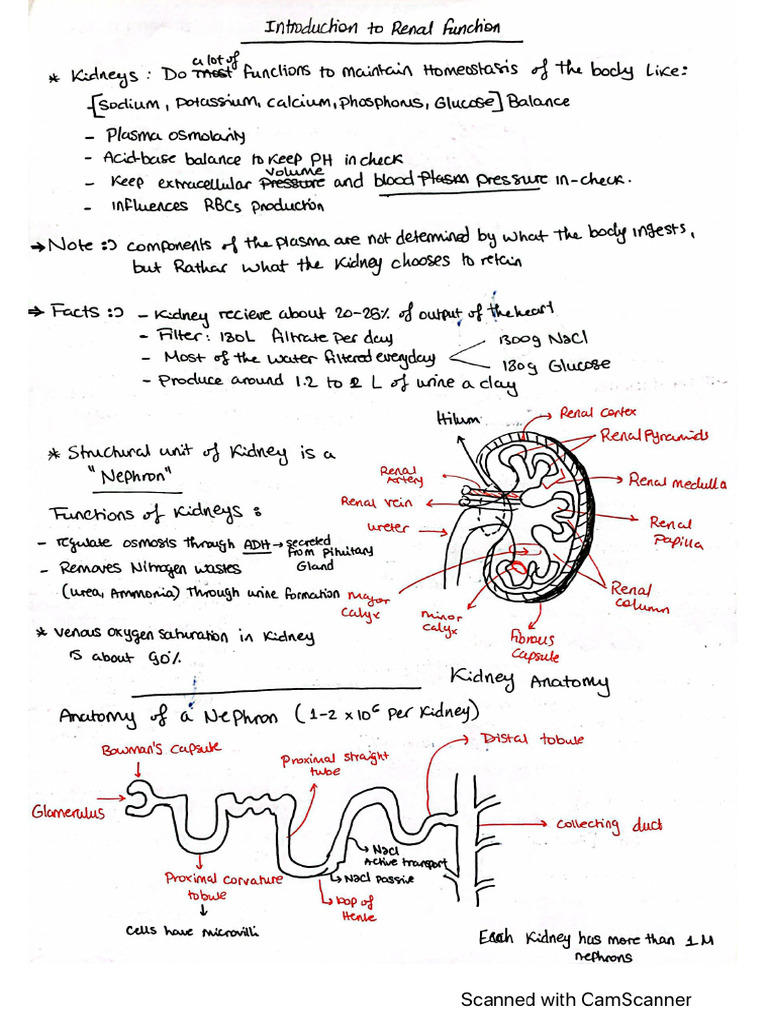 Introduction to Renal function
a lot of
* Kidneys : Do most functions to maintain Homeostasis of the body Like:
[Sodium, Potassium, Calcium, Phosphorus, Glucose] Balance
- Plasma osmolarity
- Acid-base balance to keep PH in check
volume
- Keep extracellular pressure and blood plasm pressure in-check.
- Influences RBCs production
→ Note :> components of the plasma are not determined by what the body ingests,
but Rathar what the Kidney chooses to retain
→ Facts :> - Kidney recieve about 20-25% of output of the heart
- Filter: 180L filtrate per day
- Most of the water filtered everyday
1300g NaCl
180g Glucose
- Produce around 1.2 to 2 L of urine a day
* Structural unit of Kidney is a
"Nephron"
Functions of Kidneys :
- regulate osmosis through ADH → secreted
from Pituitary
Gland
- Removes Nitrogen wastes
(urea, Ammonia) through urine formation
* Venous oxygen saturation in Kidney
is about 90%
Hilum
Renal cortex
Renal Pyramids
Renal medulla
Renal
Artery
Renal vein
ureter
Renal
Papilla
Renal
column
major
calyx
minor
calyx
fibrous
capsule
Kidney Anatomy
Anatomy of a Nephron (1-2 x10⁶ per Kidney)
Bowman's capsule
Glamerulus
Proximal straight
tube
Distal tobule
collecting duct
NaCl
Active transport
NaCl passive
Proximal corvature
tobule
loop of
Henle
cells have microvilli
Each Kidney has more than 1M
nephrons
Scanned with CamScanner